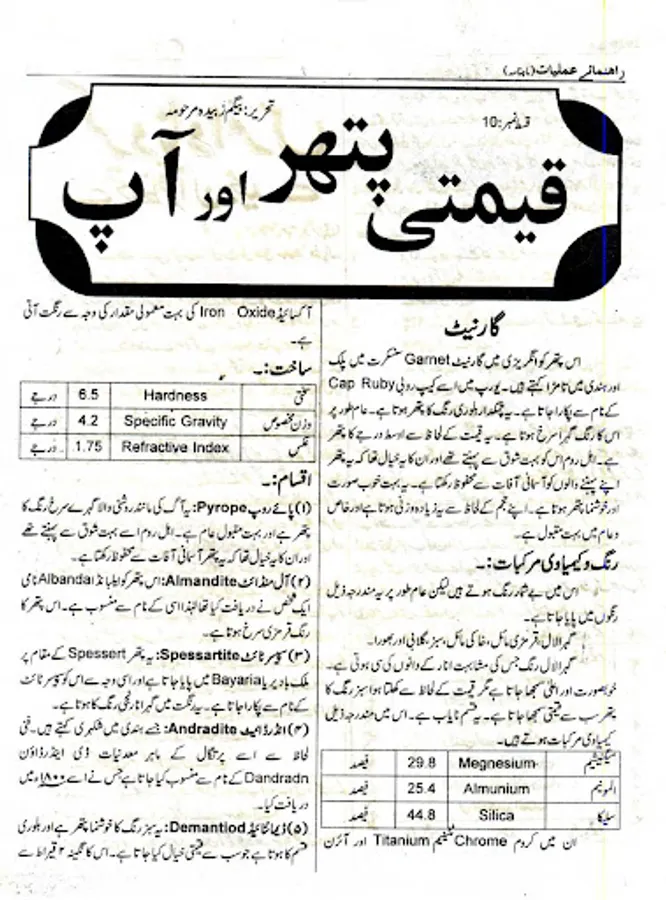 راہنمائے عملیات (ماہنامہ)
قسط نمبر: 10
تحریر: بیگم زبیدہ مرحومہ
قیمتی پتھر اور آپ
گارنیٹ
اس پتھر کو انگریزی میں گارنیٹ Garnet سنسکرت میں پلک
اور ہندی میں تامڑا کہتے ہیں۔ یورپ میں اسے کیپ روبی Cap Ruby
کے نام سے پکارا جاتا ہے۔ یہ چمکدار بلوری رنگ کا پتھر ہوتا ہے۔ عام طور پر
اس کا رنگ گہرا سرخ ہوتا ہے۔ یہ قیمت کے لحاظ سے اوسط درجے کا پتھر
ہے۔ اہل روم اس کو بہت شوق سے پہنتے تھے اور ان کا یہ خیال تھا کہ یہ پتھر
اپنے پہننے والوں کو آسمانی آفات سے محفوظ رکھتا ہے۔ یہ بہت خوب صورت
اور خوشنما پتھر ہوتا ہے۔ اپنے حجم کے لحاظ سے یہ زیادہ وزنی ہوتا ہے اور خاص
و عام میں بہت مقبول ہے۔
رنگ و کیمیاوی مرکبات:۔
اس میں بے شمار رنگ ہوتے ہیں لیکن عام طور پر یہ مندرجہ ذیل
رنگوں میں پایا جاتا ہے۔
گہرا لال، قرمزی مائل، خاکی مائل، سبز، گلابی اور بھورا۔
گہرا لال رنگ جس کی مشابہت انار کے دانوں کی سی ہوتی ہے۔
خوبصورت اور اعلیٰ سمجھا جاتا ہے مگر قیمت کے لحاظ سے کھلتا ہوا سبز رنگ کا
پتھر سب سے قیمتی سمجھا جاتا ہے۔ یہ قسم نایاب ہے۔ اس میں مندرجہ ذیل
کیمیاوی مرکبات ہوتے ہیں۔
میگنیشیم Megnesium 29.8 فیصد
المونیم Almunium 25.4 فیصد
سلیکا Silica 44.8 فیصد
ان میں کروم Chrome ٹیٹینیم Titanium اور آئرن
آکسائیڈ Iron Oxide کی بہت معمولی مقدار کی وجہ سے رنگت آتی
ہے۔
ساخت:۔
سختی Hardness 6.5 درجے
وزن مخصوص Specific Gravity 4.2 درجے
عکس Refractive Index 1.75 درجے
اقسام:۔
(۱) پائے روپ Pyrope: یہ آگ کی مانند روشنی والا گہرے سرخ رنگ کا
پتھر ہے اور بہت مقبول عام ہے۔ اہل روم اسے بہت شوق سے پہنتے تھے
اور ان کا یہ خیال تھا کہ یہ پتھر آسمانی آفات سے محفوظ رکھتا ہے۔
(۲) آل منڈائٹ Almandite: اس پتھر کو ایلبانڈا Albanda نامی
ایک شخص نے دریافت کیا تھا لہٰذا اسی کے نام سے منسوب ہے۔ اس پتھر کا
رنگ قرمزی سرخ ہوتا ہے۔
(۳) سپسرٹائٹ Spessartite: یہ پتھر Spessert کے مقام پر
ملک باویریا Bayaria میں پایا جاتا ہے اور اسی وجہ سے اس کو سپسرٹائٹ
کے نام سے پکارا جاتا ہے۔ یہ رنگت میں گہرا نارنجی رنگ کا ہوتا ہے۔
(۴) انڈراڈائیٹ Andradite: جسے ہندی میں شکھری کہتے ہیں۔ فنی
لحاظ سے اسے پرتگال کے ماہر معدنیات ڈی اینڈراڈاؤن
Dandradn کے نام سے منسوب کیا جاتا ہے جس نے اسے ۱۸۰۰ء میں
دریافت کیا۔
(۵) ڈیمانٹائیڈ Demantiod: یہ سبز رنگ کا خوشنما پتھر ہے اور بلوری
قسم کا ہوتا ہے جو سب سے قیمتی خیال کیا جاتا ہے۔ اس کا نگینہ ۲ قیراط سے